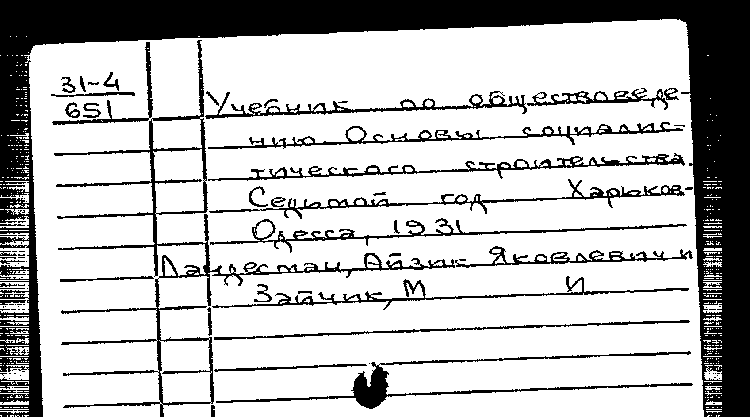 31-4
651
Учебник по обществоведе-
нию Основы социалис-
тического строительства.
Седьмой год Харьков-
Одесса, 1931
Ландесман, Айзик Яковлевич и
Зайчик, М И